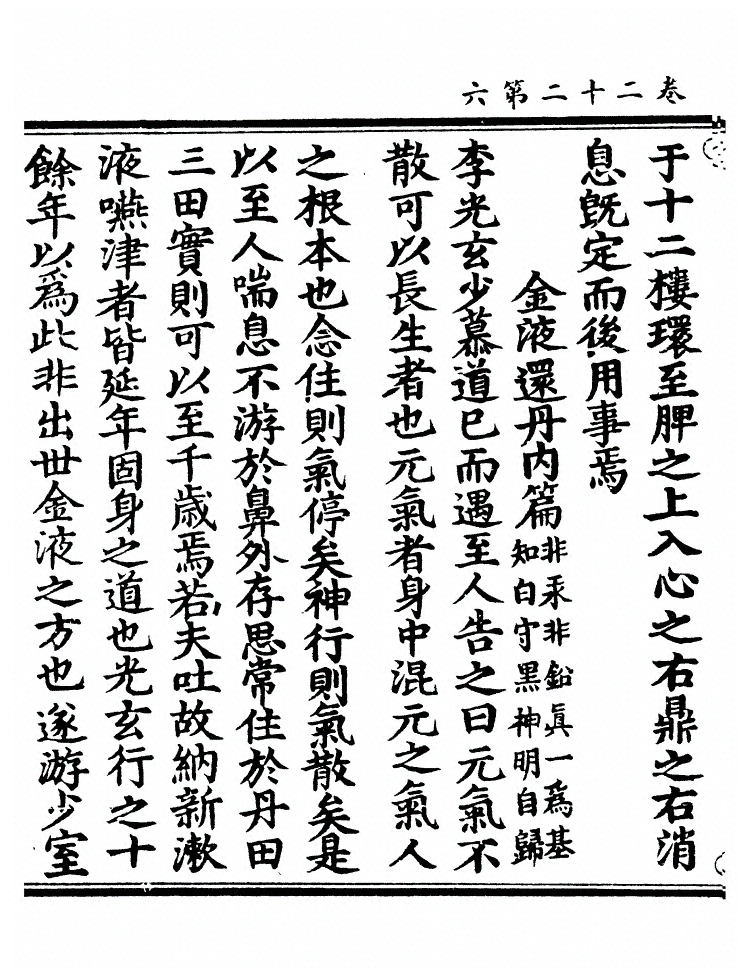 卷二十二第六
于十二樓環至脾之上入心之右鼎之右消
息旣定而後用事焉
金液還丹内篇非汞非鉛眞一爲基知白守黒神明自歸
李光玄少慕道巳而遇至人告之曰元氣不
散可以長生者也元氣者身中混元之氣人
之根本也念住則氣停矣神行則氣散矣是
以至人喘息不游於鼻外存思常住於丹田
三田實則可以至千歳焉若夫吐故納新漱
液嚥津者皆延年固身之道也光玄行之十
餘年以爲此非出世金液之方也遂游少室